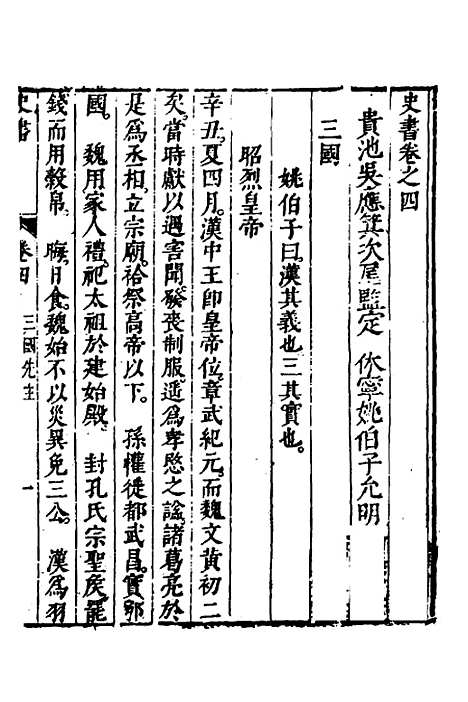 史書卷之四
貴池吳應箕次尾監定　休寧姚伯子允明
三國
姚伯子曰。漢其義也。三其實也。
昭烈皇帝
辛丑。夏四月。漢中王卽皇帝位。章武紀元。而魏文黃初二
矣。當時獻以遇害聞。發喪制服。遥爲孝愍之諡。諸葛亮於
是爲丞相。立宗廟。祫祭高帝以下。　孫權徙都武昌。實鄂
國。　魏用家人禮。祀太祖於建始殿。　封孔氏宗聖矦。罷
錢而用穀帛。　晦日食。魏始不以災異免三公。　漢爲羽
史書　卷四　三國先主　一